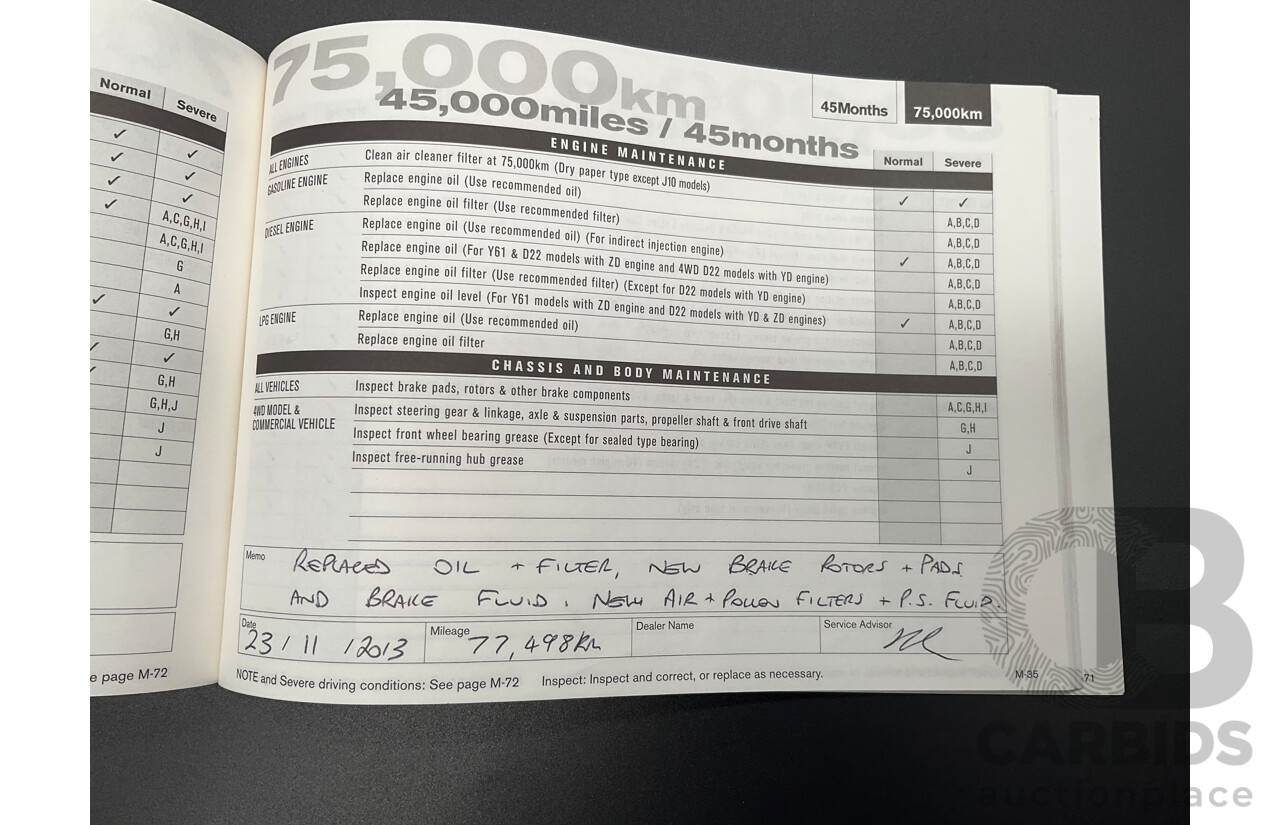 Normal Severe
✓ ✓
✓ ✓
✓ ✓
✓ A,C,G,H,I
A,C,G,H,I
G
A
✓ ✓
G,H
✓ ✓
✓ G,H
G,H,J
J
J
e page M-72
75,000km
45,000miles / 45months
45Months 75,000km
ENGINE MAINTENANCE Normal Severe
ALL ENGINES Clean air cleaner filter at 75,000km (Dry paper type except J10 models) ✓ ✓
GASOLINE ENGINE Replace engine oil (Use recommended oil) A,B,C,D
Replace engine oil filter (Use recommended filter) A,B,C,D
DIESEL ENGINE Replace engine oil (Use recommended oil) (For indirect injection engine) ✓ A,B,C,D
Replace engine oil (For Y61 & D22 models with ZD engine and 4WD D22 models with YD engine) A,B,C,D
Replace engine oil filter (Use recommended filter) (Except for D22 models with YD engine) A,B,C,D
Inspect engine oil level (For Y61 models with ZD engine and D22 models with YD & ZD engines) ✓ A,B,C,D
LPG ENGINE Replace engine oil (Use recommended oil) A,B,C,D
Replace engine oil filter A,B,C,D
CHASSIS AND BODY MAINTENANCE
ALL VEHICLES Inspect brake pads, rotors & other brake components A,C,G,H,I
4WD MODEL & Inspect steering gear & linkage, axle & suspension parts, propeller shaft & front drive shaft G,H
COMMERCIAL VEHICLE Inspect front wheel bearing grease (Except for sealed type bearing) J
Inspect free-running hub grease J
Memo REPLACED OIL + FILTER, NEW BRAKE ROTORS + PADS
AND BRAKE FLUID. NEW AIR + POLLEN FILTERS + P.S. FLUID.
Date 23/11/2013 Mileage 77,498km Dealer Name Service Advisor
NOTE and Severe driving conditions: See page M-72 Inspect: Inspect and correct, or replace as necessary. M-35 71
CB
CARBIDS
auctionplace